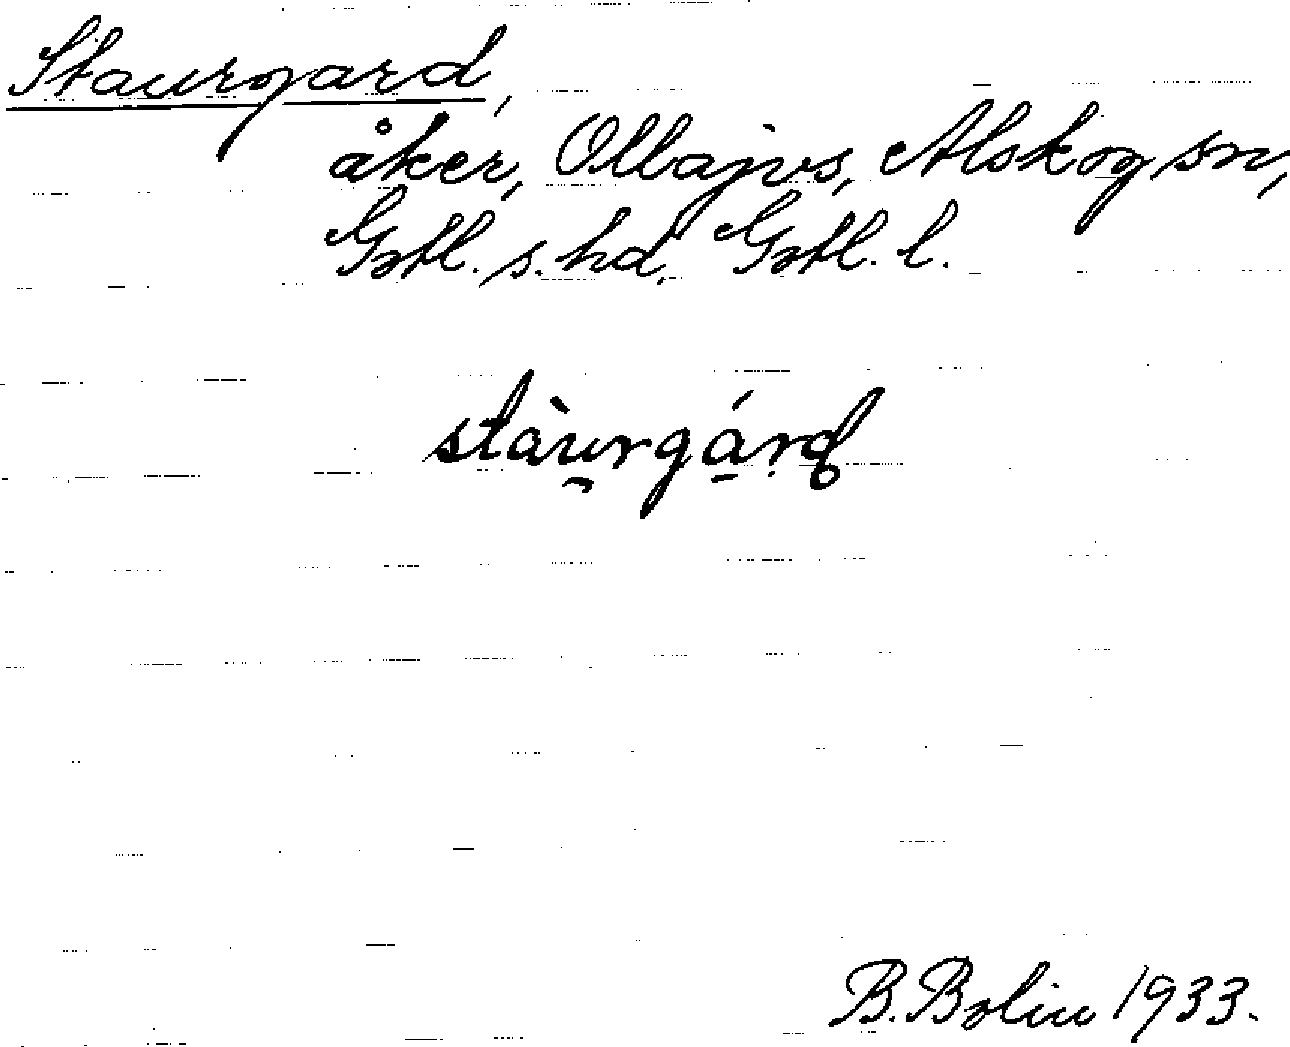 Staurgard,
åker, Ollajvs, Alskog sn,
Gotl. s. hd, Gotl. l.
stàu̯rgá̠rḍ
B. Bolin 1933.